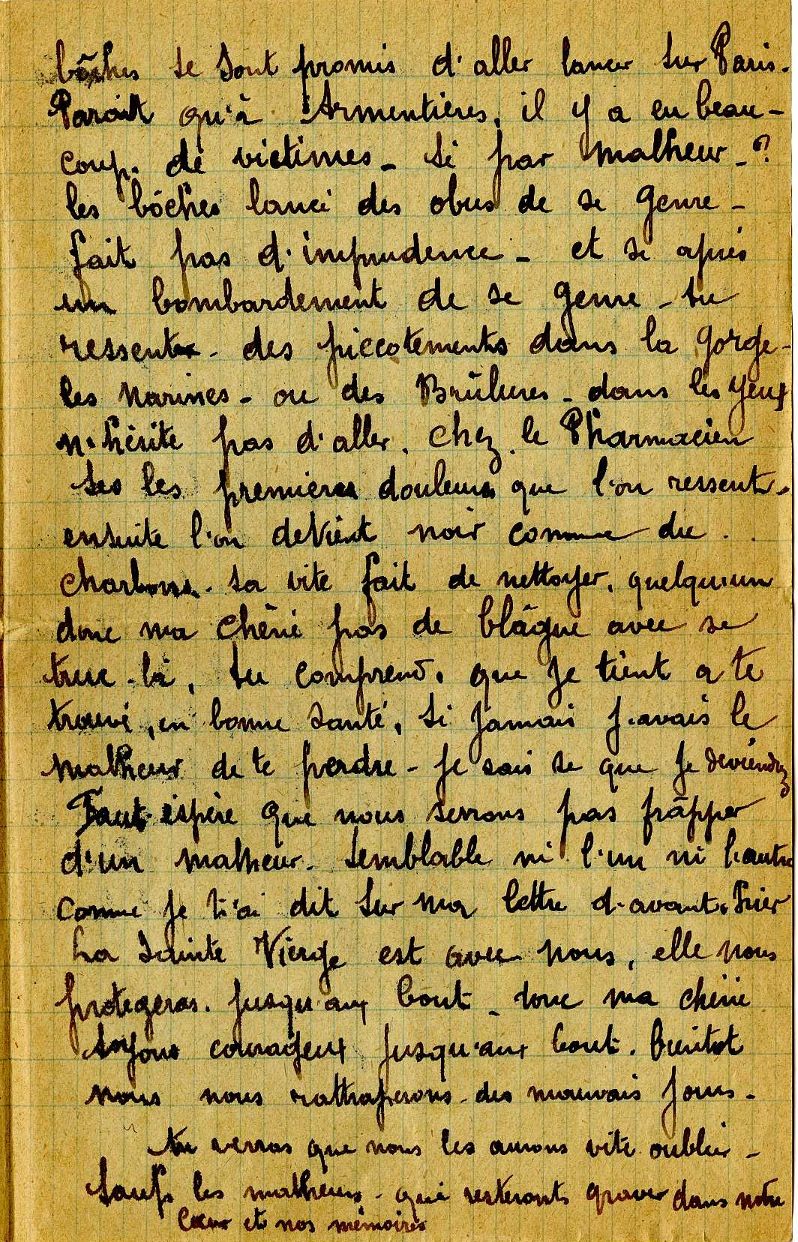 bôches se sont promis d'aller lancer sur Paris.
Parait qu'à Armentières, il y a eu beau-
coup. de victimes - si par malheur - ?
les bôches lancé des obus de se genre -
fait pas d'imprudence - et si après
un bombardement de se genre - tu
ressent - des piccotements dans la gorge -
les narines - ou des Brûlures - dans les yeux
n'hésite pas d'aller. chez le Pharmacien
Ses les premieres douleurs que l'on ressent -
ensuite l'on devient noir comme du . .
charbons. sa vite fait de nettoyer, quelqu'un
donc ma chérie pas de blâgue avec se
truc-là, tu comprend, que je tient a te
trouvé, en bonne santé, si jamais j'avais le
malheur de te perdre - je sais se que je deviendrez
Faut espère que nous serrons pas frâpper
d'un malheur. semblable ni l'un ni l'autre
comme je t'ai dit sur ma lettre d'avant-hier
La Sainte Vierge est avec nous, elle nous
protegeras. jusqu'aux bout - donc ma chérie
soyons courageux jusqu'aux bout. bientot
nous nous rattraperons - des mauvais jours -
tu verras que nous les aurons vite oublier -
saufs les malheurs - qui resteronts graver dans notre
Cœur et nos mémoires